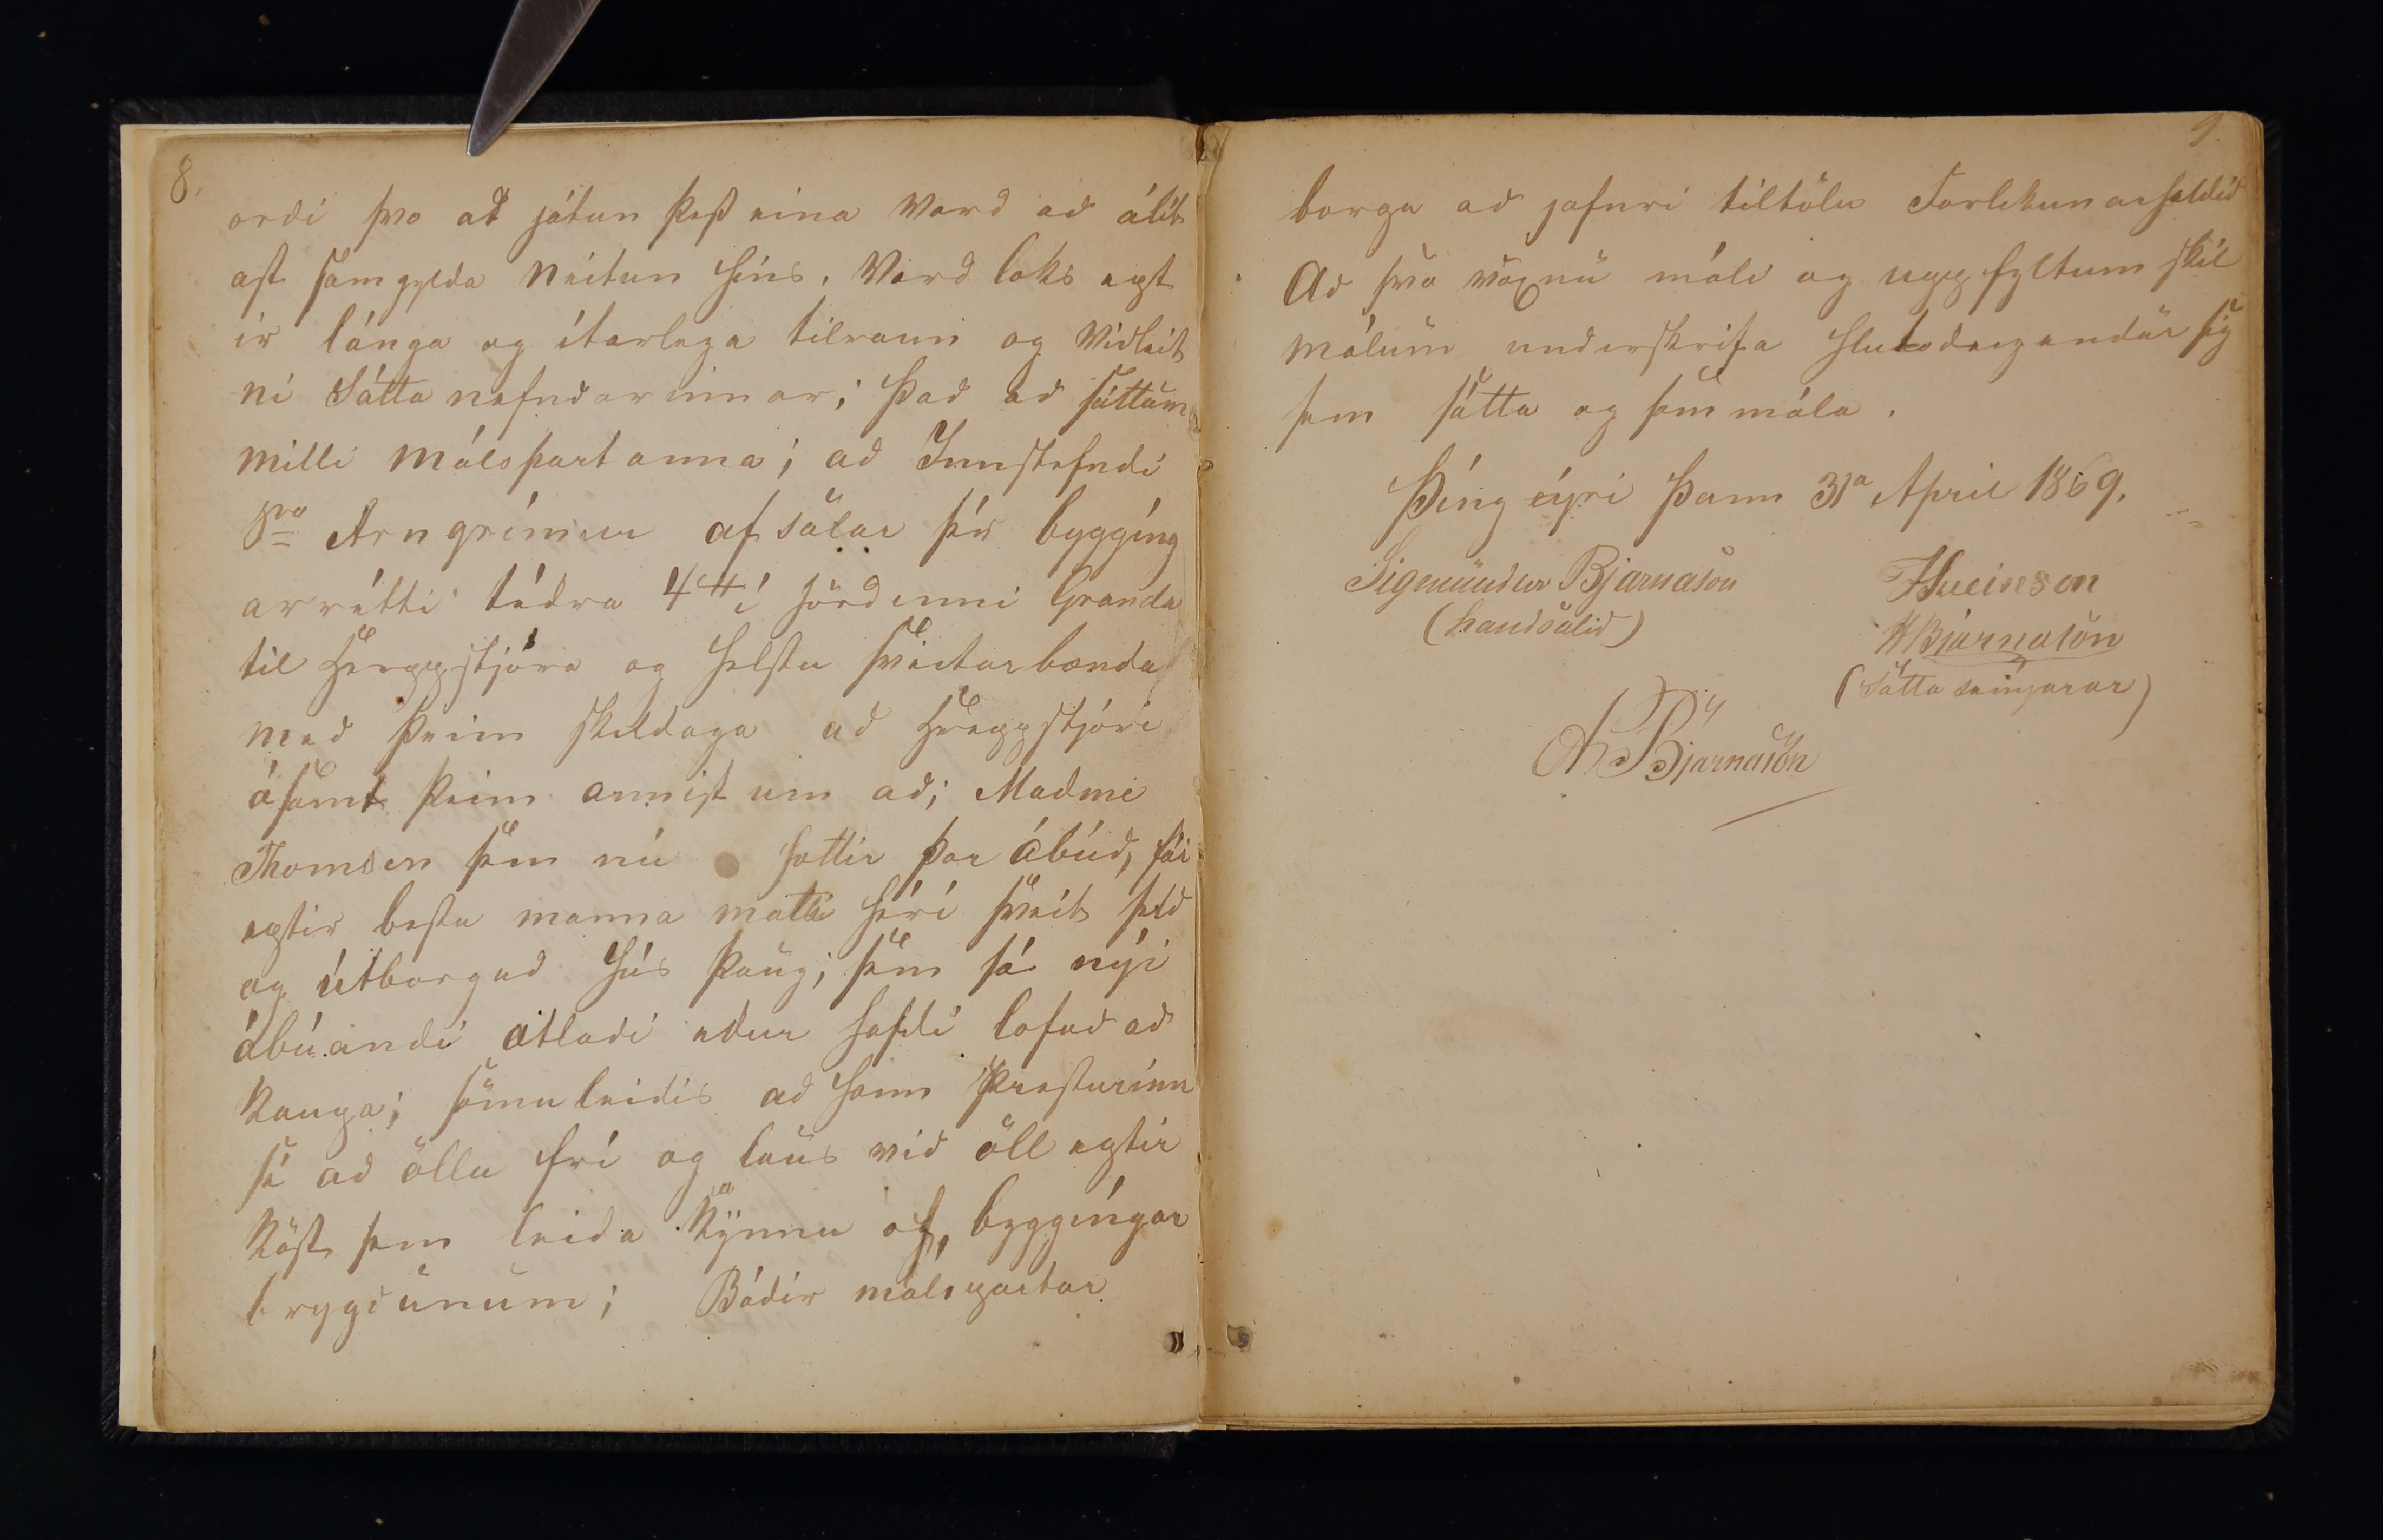 8.
ordi svo að játun þess eina Vard að álít
ast samgylda Neitun hins. Vard loks ept
ir lánga og ítarlega tilraun og Viðleit
ni Sáttanefndarinnar; það að sáttum
milli Málspartanna; að Innstefndi
Sra Arngrímur afsalar sér bygging
arrétti tédra 4 í jördunni Granda
til Hreppstjóra og helstu sveitarbænda
með þeim skildaga að Hreppstjóri
ásamt þeim annist um að; Madme
Thomsen sem nú hættir þar ábúð, fái
eptir bestu manna mati hér í sveit seld
og útborgud hús þaug; sem sá nýi
ábúandi ætladi edur hafdi lofad að
Kaupa; sömuleidis að hann Presturinn
sé að öllu frí og laus við öll eptir
Köst sem leida Kynnu af, byggingar
brygdunum; Bádir málspartar
9
borga að jafnri tiltölu Forlikunarhaldið
Að svo vöxnu máli og uppfyltum skil
málum underskrifa hlutadeigendur sig
sem sátta og sammála.
Þingeyri þann 31a April 1869.
Sigmundur Bjarnason
(handsalid)
JSveinson
HBjarnason
(Sáttaseinjarar)
A Bjarnason